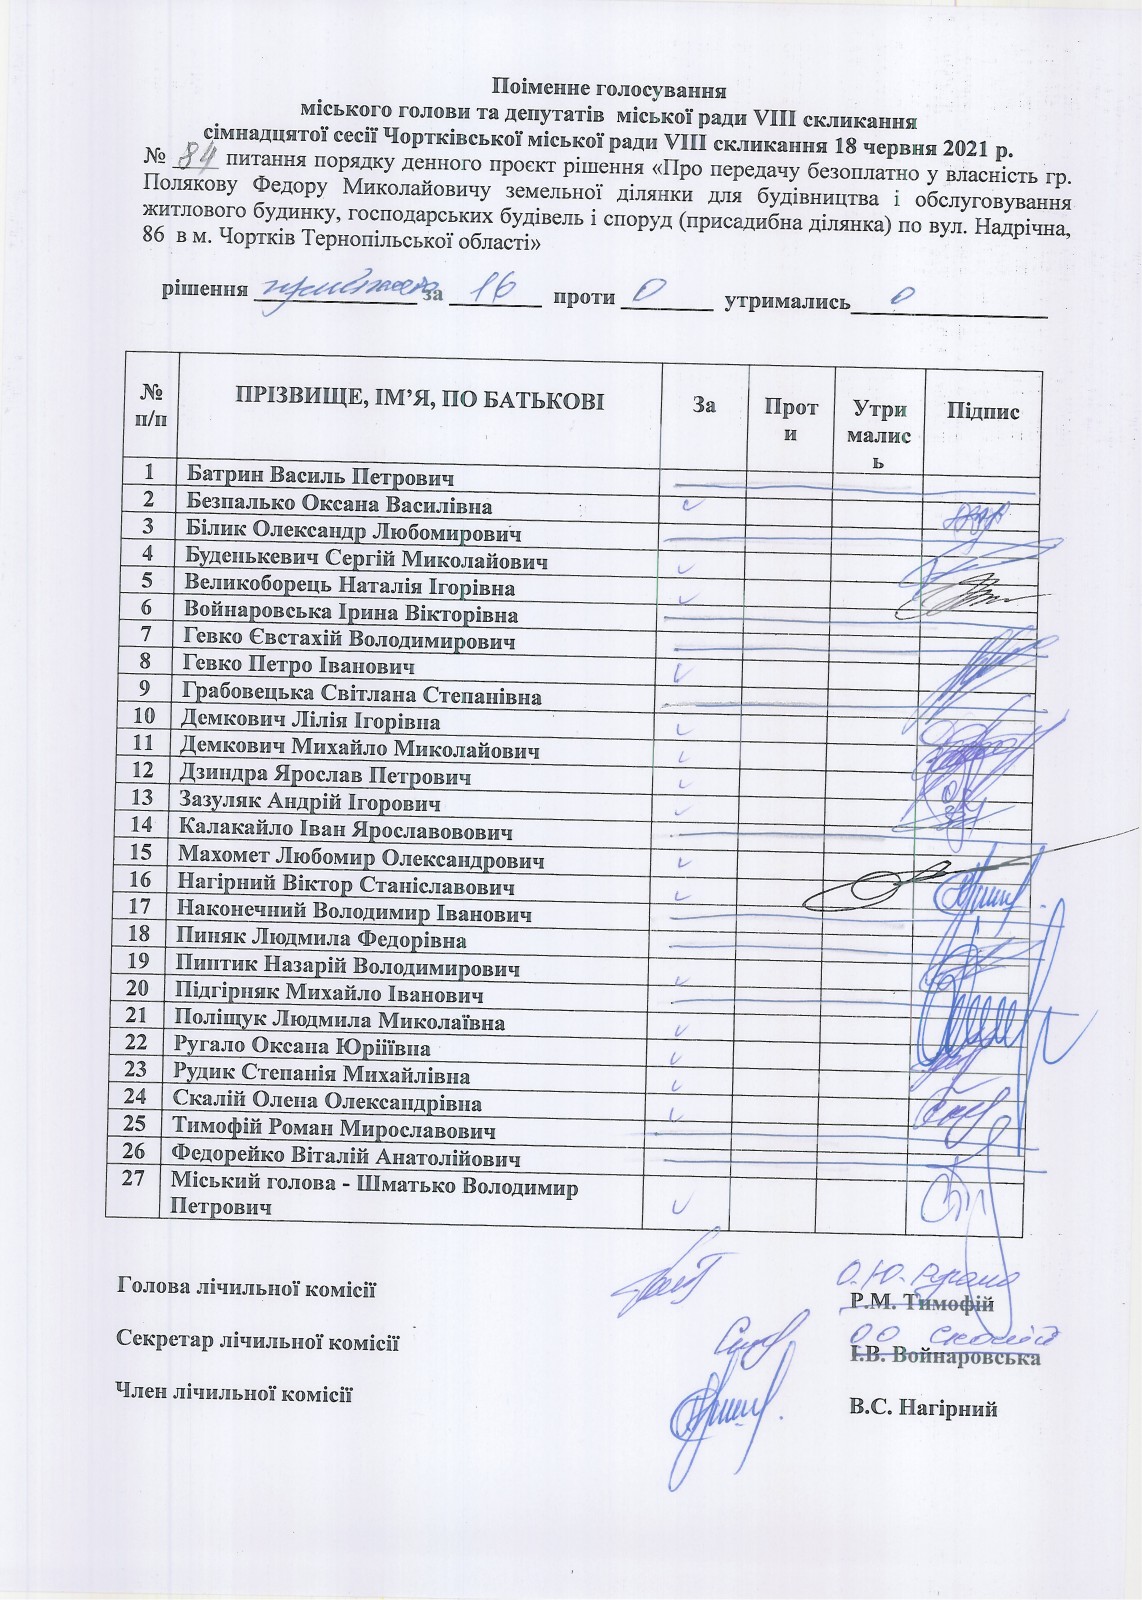 Поіменне голосування
міського голови та депутатів міської ради VIII скликання
сімнадцятої сесії Чортківської міської ради VIII скликання 18 червня 2021 р.
№ 84 питання порядку денного проєкт рішення «Про передачу безоплатно у власність гр.
Полякову Федору Миколайовичу земельної ділянки для будівництва і обслуговування
житлового будинку, господарських будівель і споруд (присадибна ділянка) по вул. Надрічна,
86 в м. Чортків Тернопільської області»
рішення прийнято за 16 проти 0 утримались 0
№ п/п ПРІЗВИЩЕ, ІМ’Я, ПО БАТЬКОВІ За Прот и Утри малис ь Підпис
1 Батрин Василь Петрович
2 Безпалько Оксана Василівна
3 Білик Олександр Любомирович
4 Буденькевич Сергій Миколайович
5 Великоборець Наталія Ігорівна
6 Войнаровська Ірина Вікторівна
7 Гевко Євстахій Володимирович
8 Гевко Петро Іванович
9 Грабовецька Світлана Степанівна
10 Демкович Лілія Ігорівна
11 Демкович Михайло Миколайович
12 Дзиндра Ярослав Петрович
13 Зазуляк Андрій Ігорович
14 Калакайло Іван Ярославовович
15 Махомет Любомир Олександрович
16 Нагірний Віктор Станіславович
17 Наконечний Володимир Іванович
18 Пиняк Людмила Федорівна
19 Пиптик Назарій Володимирович
20 Підгірняк Михайло Іванович
21 Поліщук Людмила Миколаївна
22 Ругало Оксана Юріїівна
23 Рудик Степанія Михайлівна
24 Скалій Олена Олександрівна
25 Тимофій Роман Мирославович
26 Федорейко Віталій Анатолійович
27 Міський голова - Шматько Володимир
Петрович
О.Ю. Ругало
Голова лічильної комісії Р.М. Тимофій
О.О. Скалій
Секретар лічильної комісії І.В. Войнаровська
Член лічильної комісії В.С. Нагірний